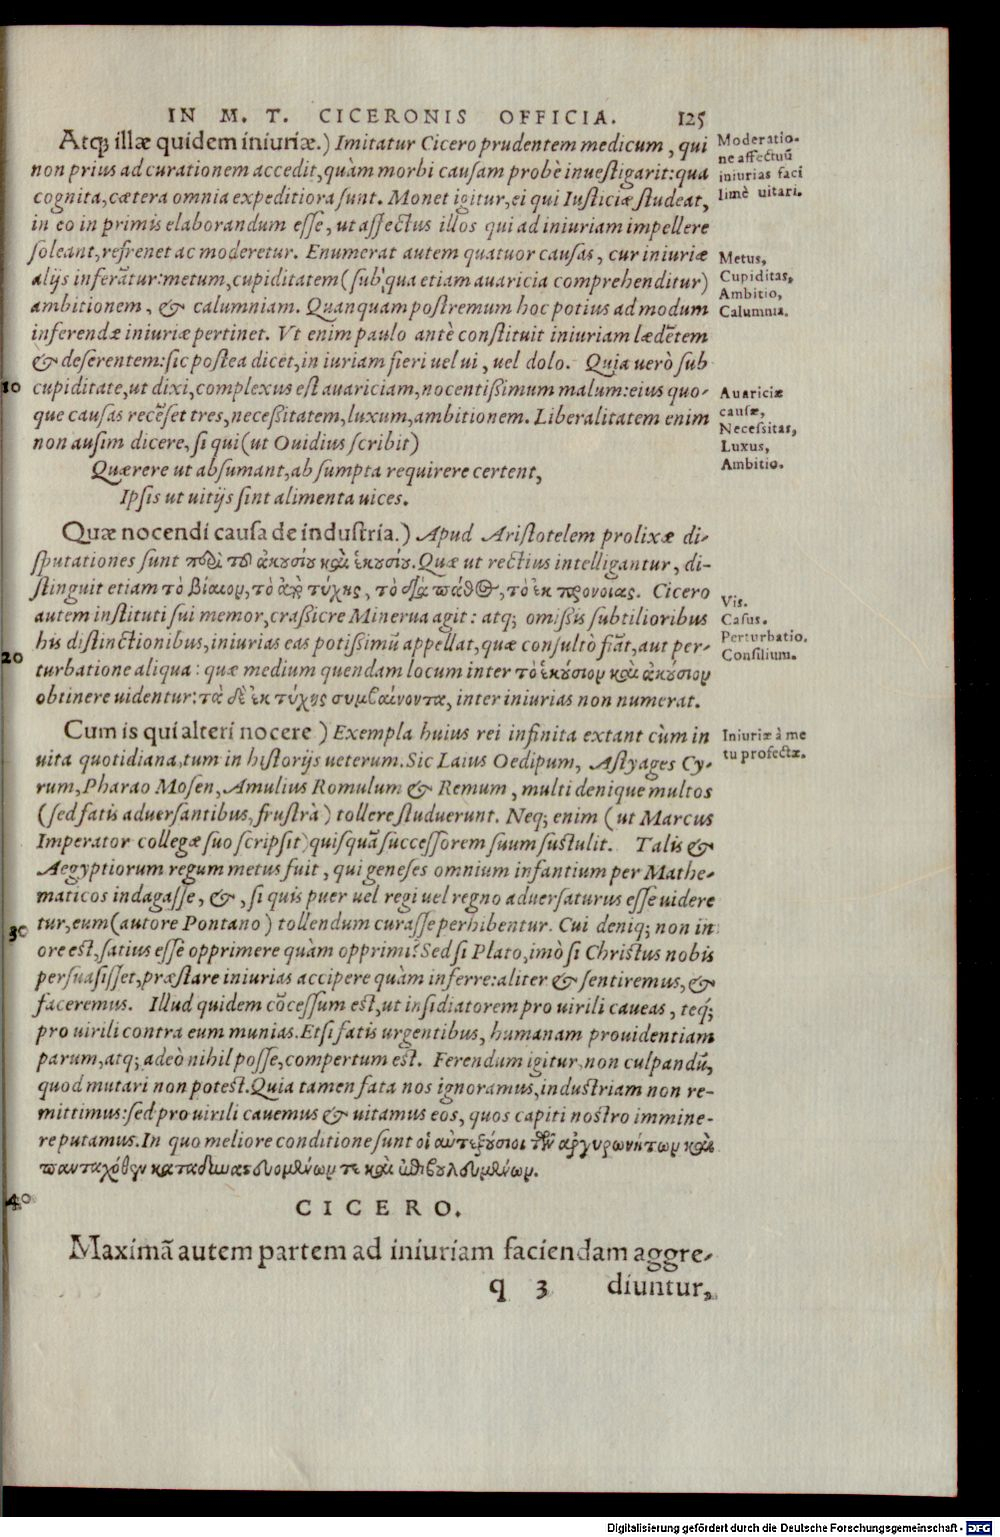 IN M. T. CICERONIS OFFICIA. 125
Atq; illæ quidem iniuriæ.) Imitatur Cicero prudentem medicum, qui
non prius ad curationem accedit, quàm morbi causam probè inuestigarit: qua
cognita, cætera omnia expeditiora sunt. Monet igitur, ei qui Iusticiæ studeat,
in eo in primis elaborandum esse, ut affectus illos qui ad iniuriam impellere
soleant, refrenet ac moderetur. Enumerat autem quatuor causas, cur iniuriæ
alijs inferãtur: metum, cupiditatem (sub qua etiam auaricia comprehenditur)
ambitionem, & calumniam. Quanquam postremum hoc potius ad modum
inferendæ iniuriæ pertinet. Vt enim paulo antè constituit iniuriam lædẽtem
& deserentem: sic postea dicet, in iuriam fieri uel ui, uel dolo. Quia uerò sub
10 cupiditate, ut dixi, complexus est auariciam, nocentißimum malum: eius quo-
que causas recẽset tres, neceßitatem, luxum, ambitionem. Liberalitatem enim
non ausim dicere, si qui (ut Ouidius scribit)
Quærere ut absumant, absumpta requirere certent,
Ipsis ut uitijs sint alimenta uices.
Quæ nocendi causa de industria.) Apud Aristotelem prolixæ di-
sputationes sunt περὶ τοῦ ἀκουσίου καὶ ἑκουσίου. Quæ ut rectius intelligantur, di-
stinguit etiam τὸ βίαιον, τὸ ἀπὸ τύχης, τὸ διὰ πάθος, τὸ ἐκ προνοίας. Cicero
autem instituti sui memor, crassiore Minerua agit: atq; omißis subtilioribus
his distinctionibus, iniurias eas potißimũ appellat, quæ consultò fiãt, aut per-
20 turbatione aliqua: quæ medium quendam locum inter τὸ ἑκούσιον καὶ ἀκούσιον
obtinere uidentur: τὰ δὲ ἐκ τύχης συμβαίνοντα, inter iniurias non numerat.
Cum is qui alteri nocere) Exempla huius rei infinita extant cùm in
uita quotidiana, tum in historijs ueterum. Sic Laius Oedipum, Astyages Cy-
rum, Pharao Mosen, Amulius Romulum & Remum, multi denique multos
(sed fatis aduersantibus, frustrà) tollere studuerunt. Neq; enim (ut Marcus
Imperator collegæ suo scripsit) quisquã successorem suum sustulit. Talis &
Aegyptiorum regum metus fuit, qui geneses omnium infantium per Mathe-
maticos indagasse, &, si quis puer uel regi uel regno aduersaturus esse uidere
30 tur, eum (autore Pontano) tollendum curasse perhibentur. Cui deniq; non in
ore est, satius esse opprimere quàm opprimi? Sed si Plato, imò si Christus nobis
persuasisset, præstare iniurias accipere quàm inferre: aliter & sentiremus, &
faceremus. Illud quidem cõcessum est, ut insidiatorem pro uirili caueas, teq́;
pro uirili contra eum munias. Etsi fatis urgentibus, humanam prouidentiam
parum, atq; adeò nihil posse, compertum est. Ferendum igitur, non culpandũ,
quod mutari non potest. Quia tamen fata nos ignoramus, industriam non re-
mittimus: sed pro uirili cauemus & uitamus eos, quos capiti nostro immine-
re putamus. In quo meliore conditione sunt οἱ αὐτεξούσιοι τῶν ἀργυρωνήτων καὶ
πανταχόθεν καταδυναστευομένων τε καὶ ἐπιβουλευομένων.
40
CICERO.
Maximã autem partem ad iniuriam faciendam aggre-
q 3 diuntur,
Moderatio-
ne affectuũ
iniurias faci
limè uitari.
Metus,
Cupiditas,
Ambitio,
Calumnia.
Auariciæ
causæ,
Necessitas,
Luxus,
Ambitio.
Vis.
Casus.
Perturbatio.
Consilium.
Iniuriæ à me
tu profectæ.
Digitalisierung gefördert durch die Deutsche Forschungsgemeinschaft - DFG